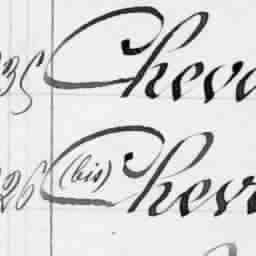 35 Cheva
26 (bis) Cheva